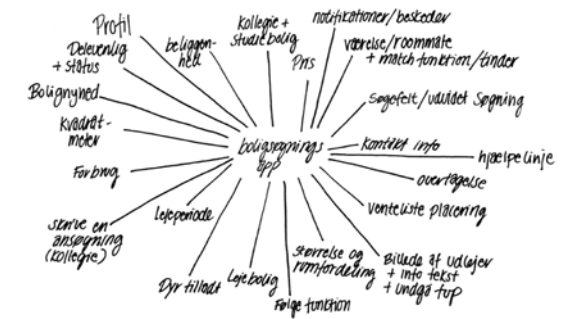 Profil
Delevenlig
+ status
Bolignyhed
kvadrat-
meter
Forbrug
skrive en
ansøgning
(kollegie)
Lejeperiode
Dyr tilladt
Lejebolig
Følge funktion
Størrelse og
rumfordeling
Billede af udlejer
+ info tekst
+ undgå fup
venteliste placering
overtagelse
hjælpe linje
kontakt info
Søgefelt/udvidet søgning
værelse/roommate
+ match funktion/tinder
notifikationer/beskeder
Pris
kollegie +
studiebolig
beliggen-
hed
boligsøgnings
app